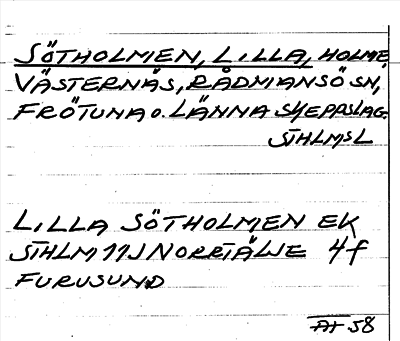 SÖTHOLMEN, LILLA, HOLME
VÄSTERNÄS, RÅDMANSÖ SN,
FRÖTUNA O. LÄNNA SKEPPSLAG.
STHLMSL
LILLA SÖTHOLMEN EK
STHLM 11J NORRTÄLJE 4f
FURUSUND
AT 58